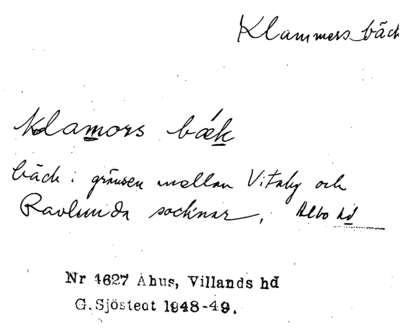 Klammers bäck
klamors bæk
bäck i gränsen mellan Vitaby och
Ravlunda socknar, Albo hd
Nr 4627 Åhus, Villands hd
G.Sjöstedt 1948-49.